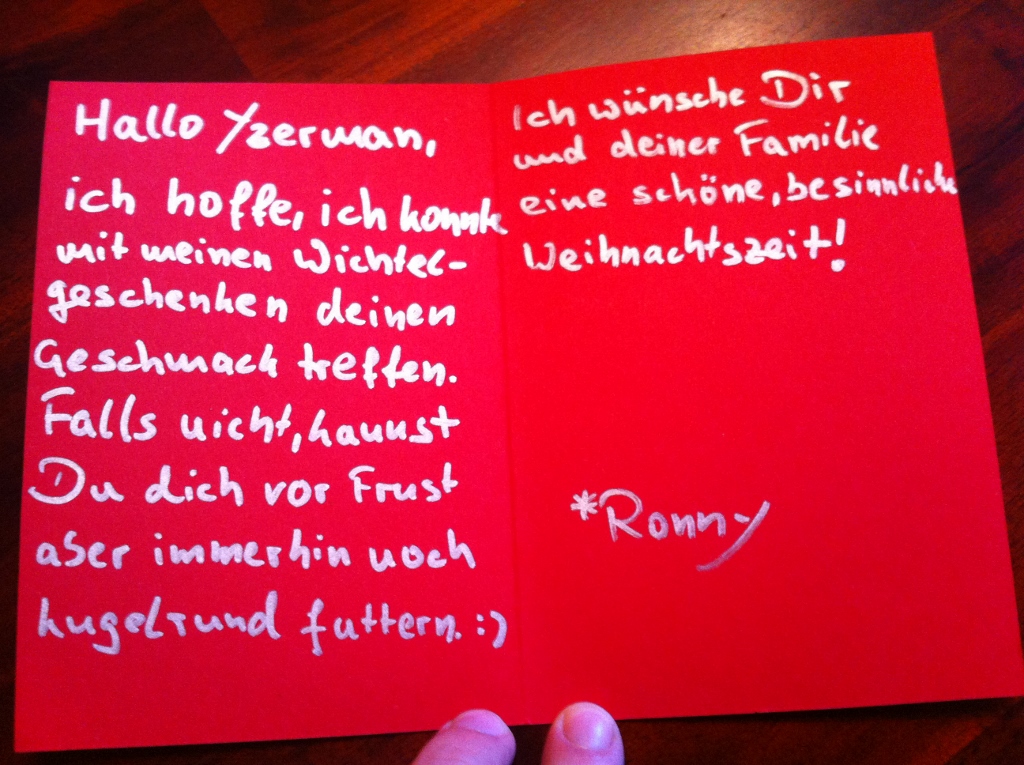 Hallo Yzerman,
ich hoffe, ich konnte
mit meinen Wichtel-
geschenken deinen
Geschmack treffen.
Falls nicht, kannst
Du dich vor Frust
aber immerhin noch
kugelrund futtern. :)
Ich wünsche Dir
und deiner Familie
eine schöne, besinnliche
Weihnachtszeit!
*Ronny